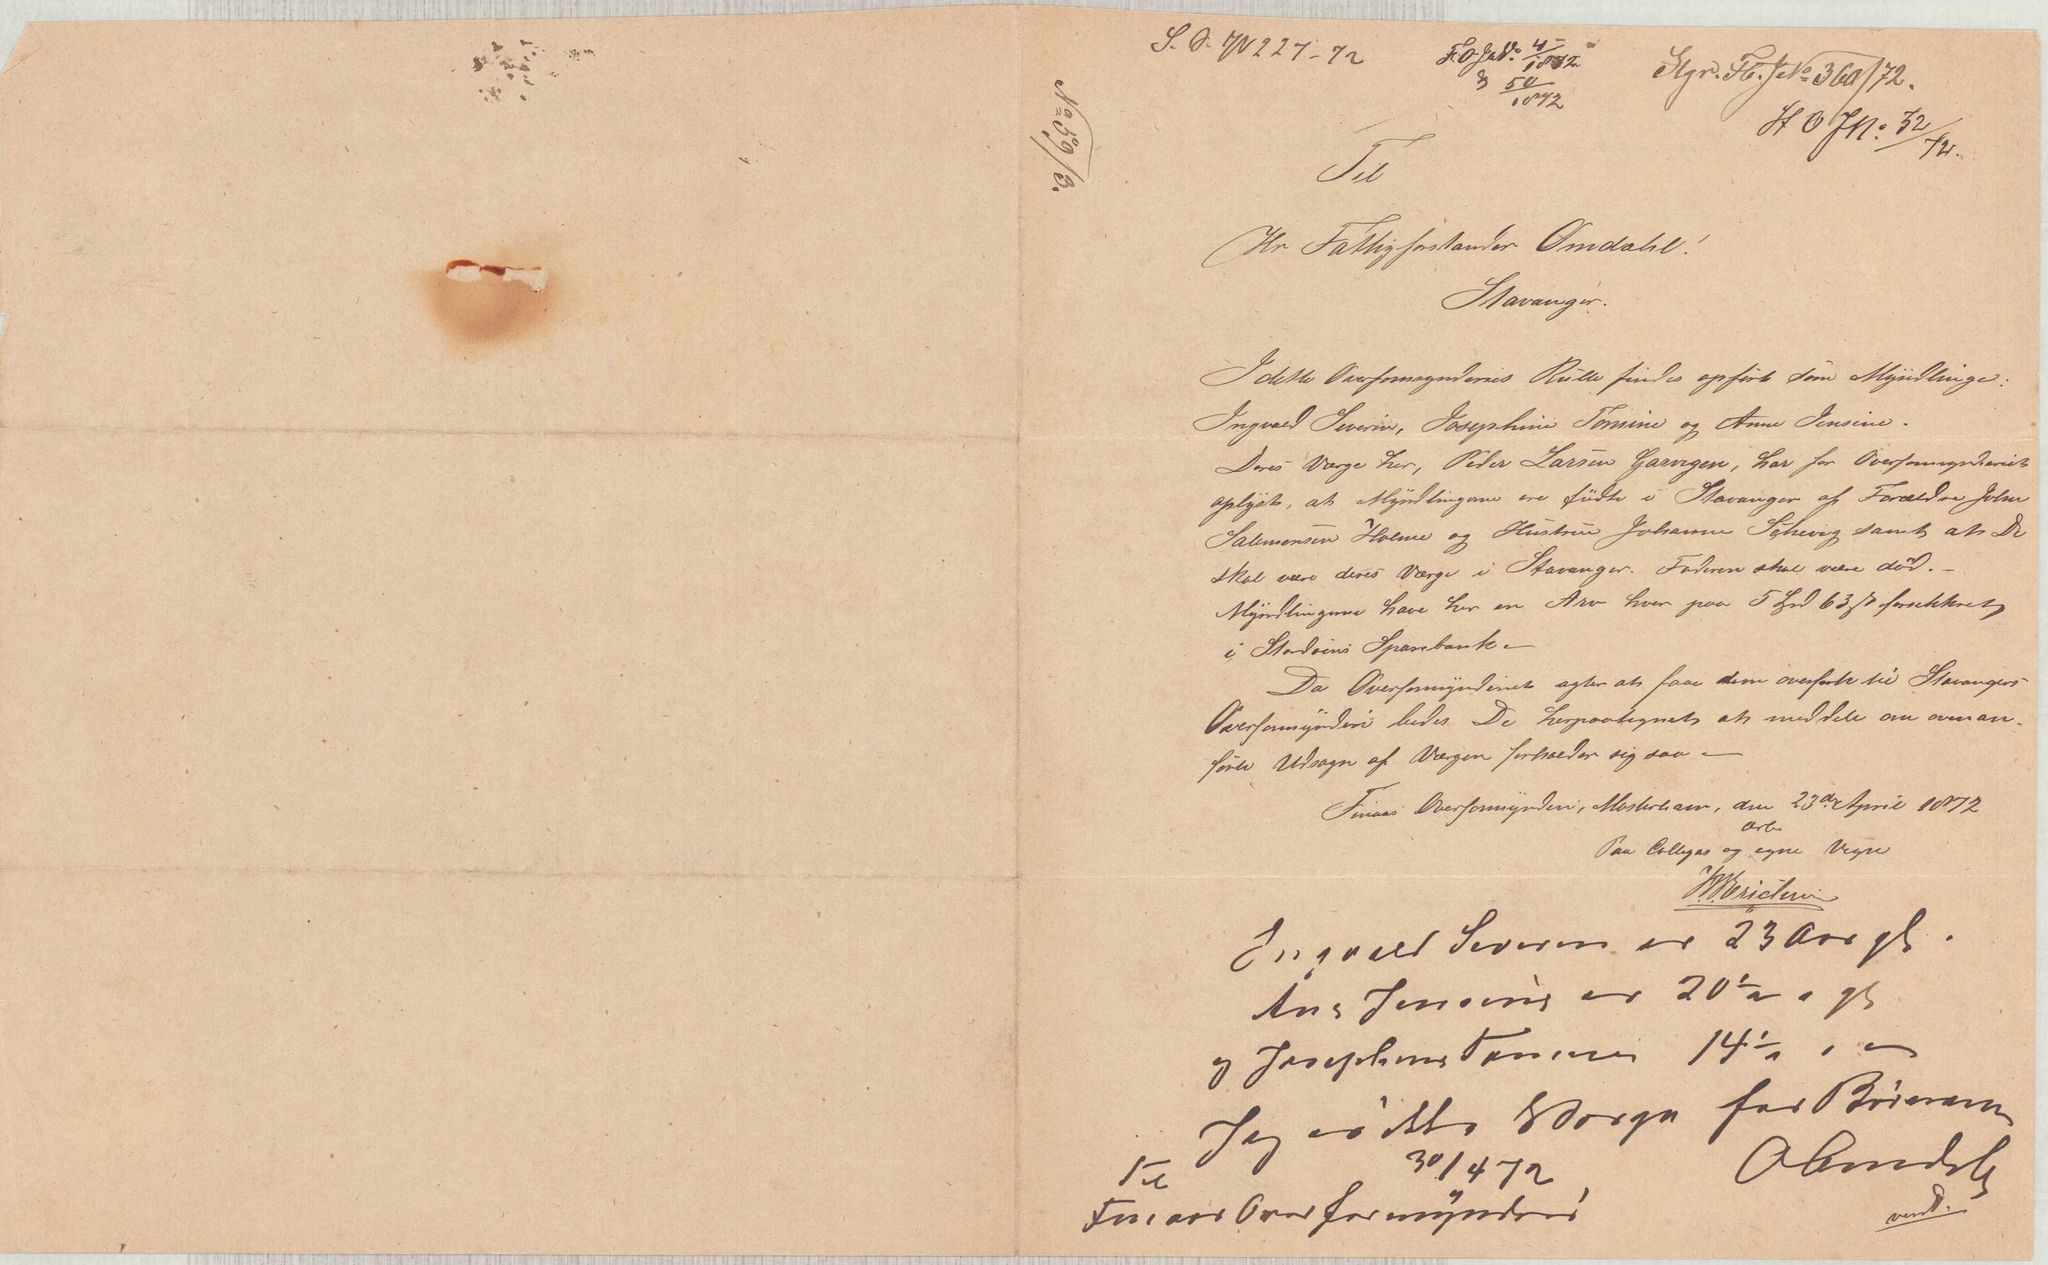 S. O. JN 227-72
F. O. JNo. 45/1872.
& 50/1872
Stgr. Fb. JNo 360/72.
St O JN: 32/72.
No 59/3.
Til
Hr Fattigforstander Omdahl!
Stavanger.
I dette Overformynderies Rulle findes opført som Myndlinge:
Ingvald Severin, Josephine Tomine og Anne Jensine.
Deres Værge her, Peder Larsen, har for Overformynderiet
oplyst, at Myndlingerne ere fødte i Stavanger af Forældre John
Salemonsen Holme og Hustrue Johanne samt at De
skal være deres Værge i Stavanger. Faderen skal være død. –
Myndlingerne have her en Arv hver paa 5 Spd 63 ß forsikkret
i Stordøens Sparebank –
Da Overformynderiet agter at faae dem overført til Stavangers
Overformynderi bedes De herpaategnet at meddele om ovenan-
førte Udsagn af Værgen forholder sig saa –
Finaas Overformynderi, Mosterhavn, den 23de April 1872
Paa Collegas og egne Vegne
ærb
Engvald Severin er 23 Aar gl.
Ane Jensine er 20 1/2 gl
og Josephine Tomine 14 1/2
Jeg er dette Værge for Børnene
30/4 72
Omdahl
Til
Finaas Overformynderi
vend.